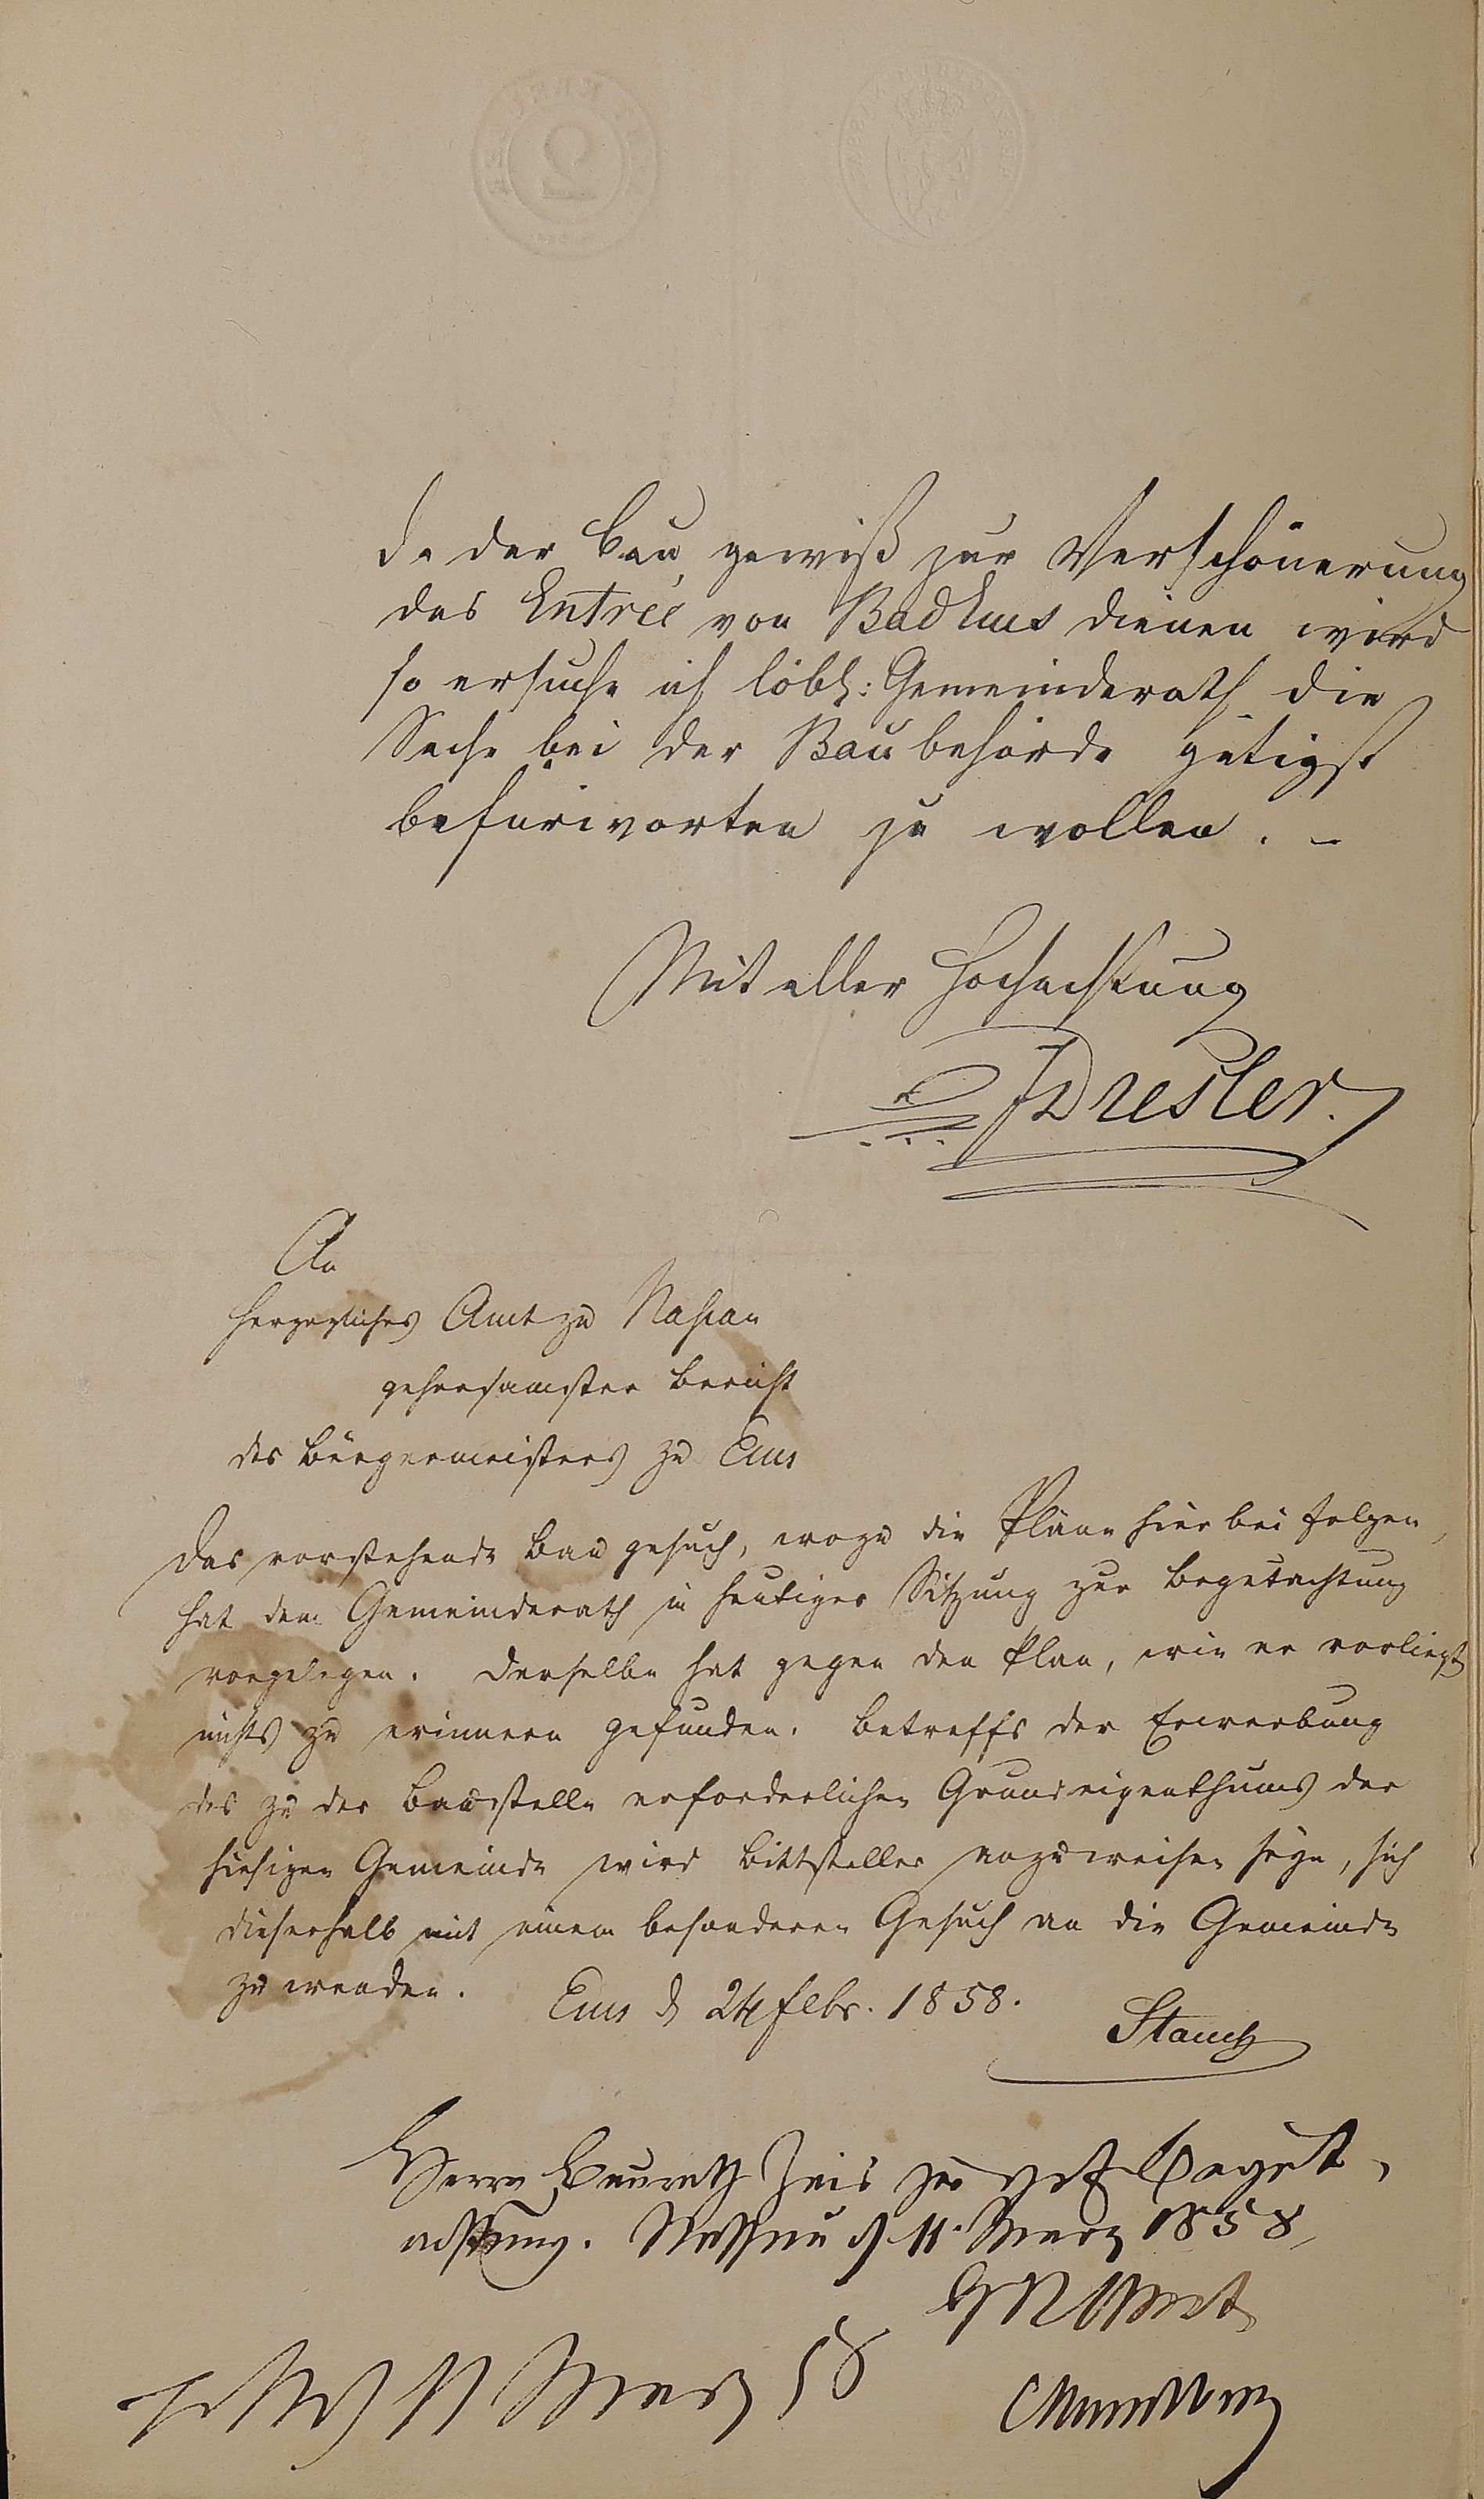 da der Bau gewiß zur Verschönerung
des Entrée von Bad Ems dienen wird
so ersuche ich löbl: Gemeinderath die
Sache bei der Baubehörde gütigst
befürworten zu wollen. –
Mit aller Hochachtung
JDresler.
An
Herzogliches Amt zu Nassau
gehorsamster Bericht
des Bürgermeisters zu Ems
Das vorstehende Baugesuch, wozu die Pläne hierbei folgen,
hat dem Gemeinderath in heutiger Sitzung zur Begutachtung
vorgelegen. Derselbe hat gegen den Plan, wie er vorliegt
nichts zu erinnern gefunden. Betreffs der Erwerbung
des zu der Baustelle erforderlichen Grundeigenthums der
hiesigen Gemeinde wird Bittsteller anzuweisen seyn, sich
dieserhalb mit einem besonderen Gesuch an die Gemeinde
zu wenden. Ems d 24 Febr. 1858.
Herrn Baurath Zais zur gef Begut-
achtung. Nassau d 11. Merz 1858
HNAmt
11 Merz 58